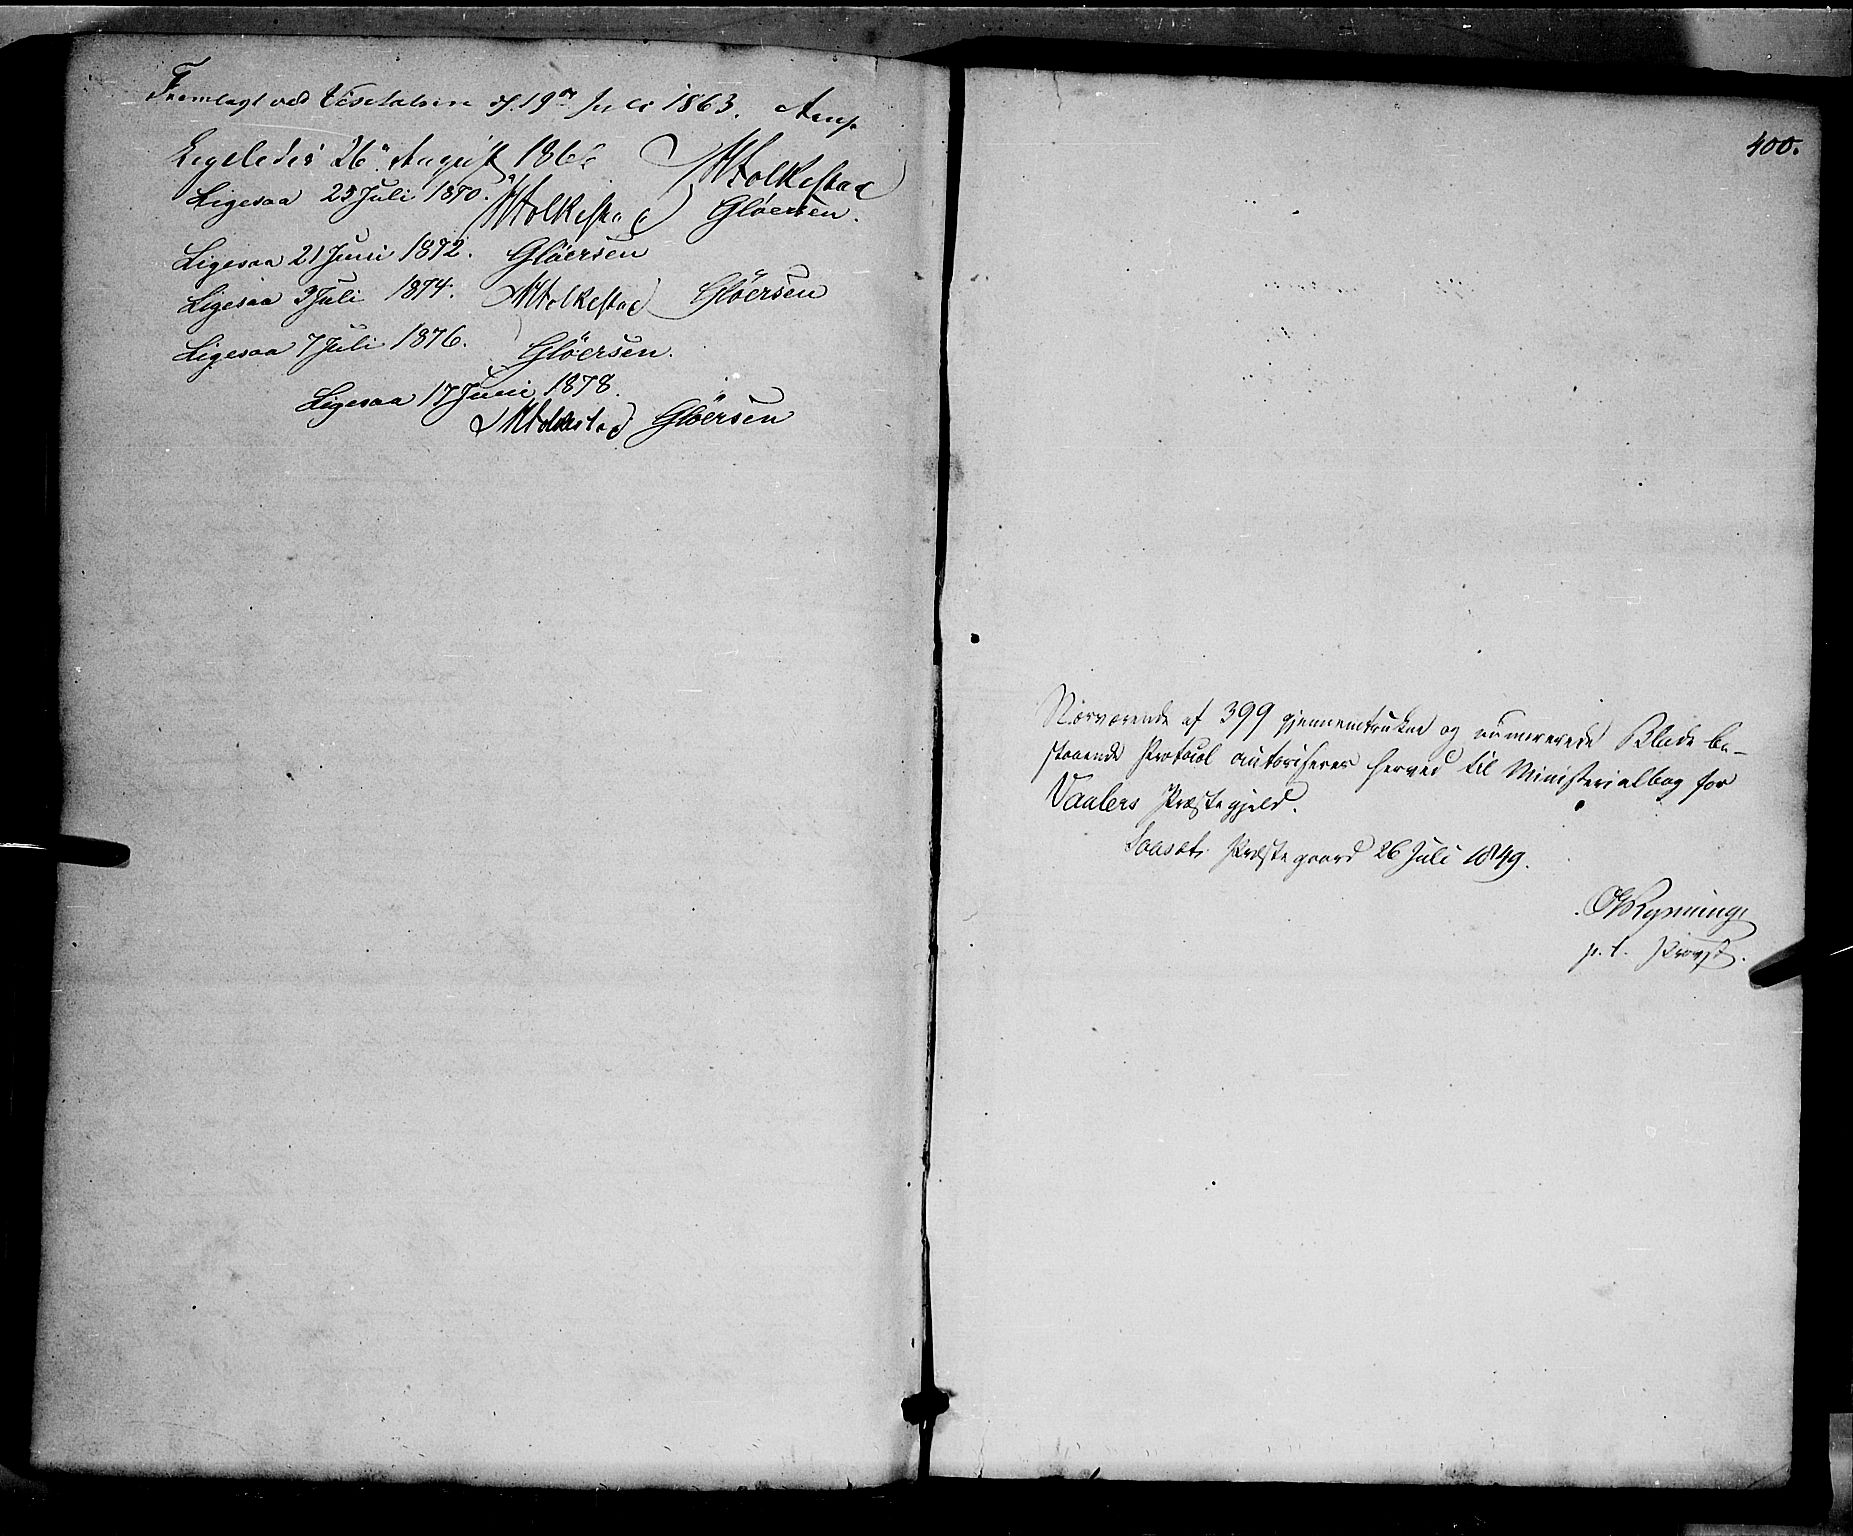 Fremlagt ved Visitatsen d. 19de Juli 1863. Arup
Ligeledes 26 August 186
HFolkestad
Ligesaa 25 Juli 1870. HFolkestad Gløersen.
Ligesaa 21 Juni 1872. Gløersen
Ligesaa 3 Juli 1874. HFolkestad Gløersen
Ligesaa 7 Juli 1876. Gløersen.
Ligesaa 17 Juni 1878.
HFolkestad Gløersen
400.
Nærværende af 399 gjennemtrukne og nummererede Blade be-
staaende Protocol autoriseres herved til Ministerialbog for
Vaalers Præstegjeld.
Præstegaard 26 Juli 1849.
Rynning
p. t. Provst.